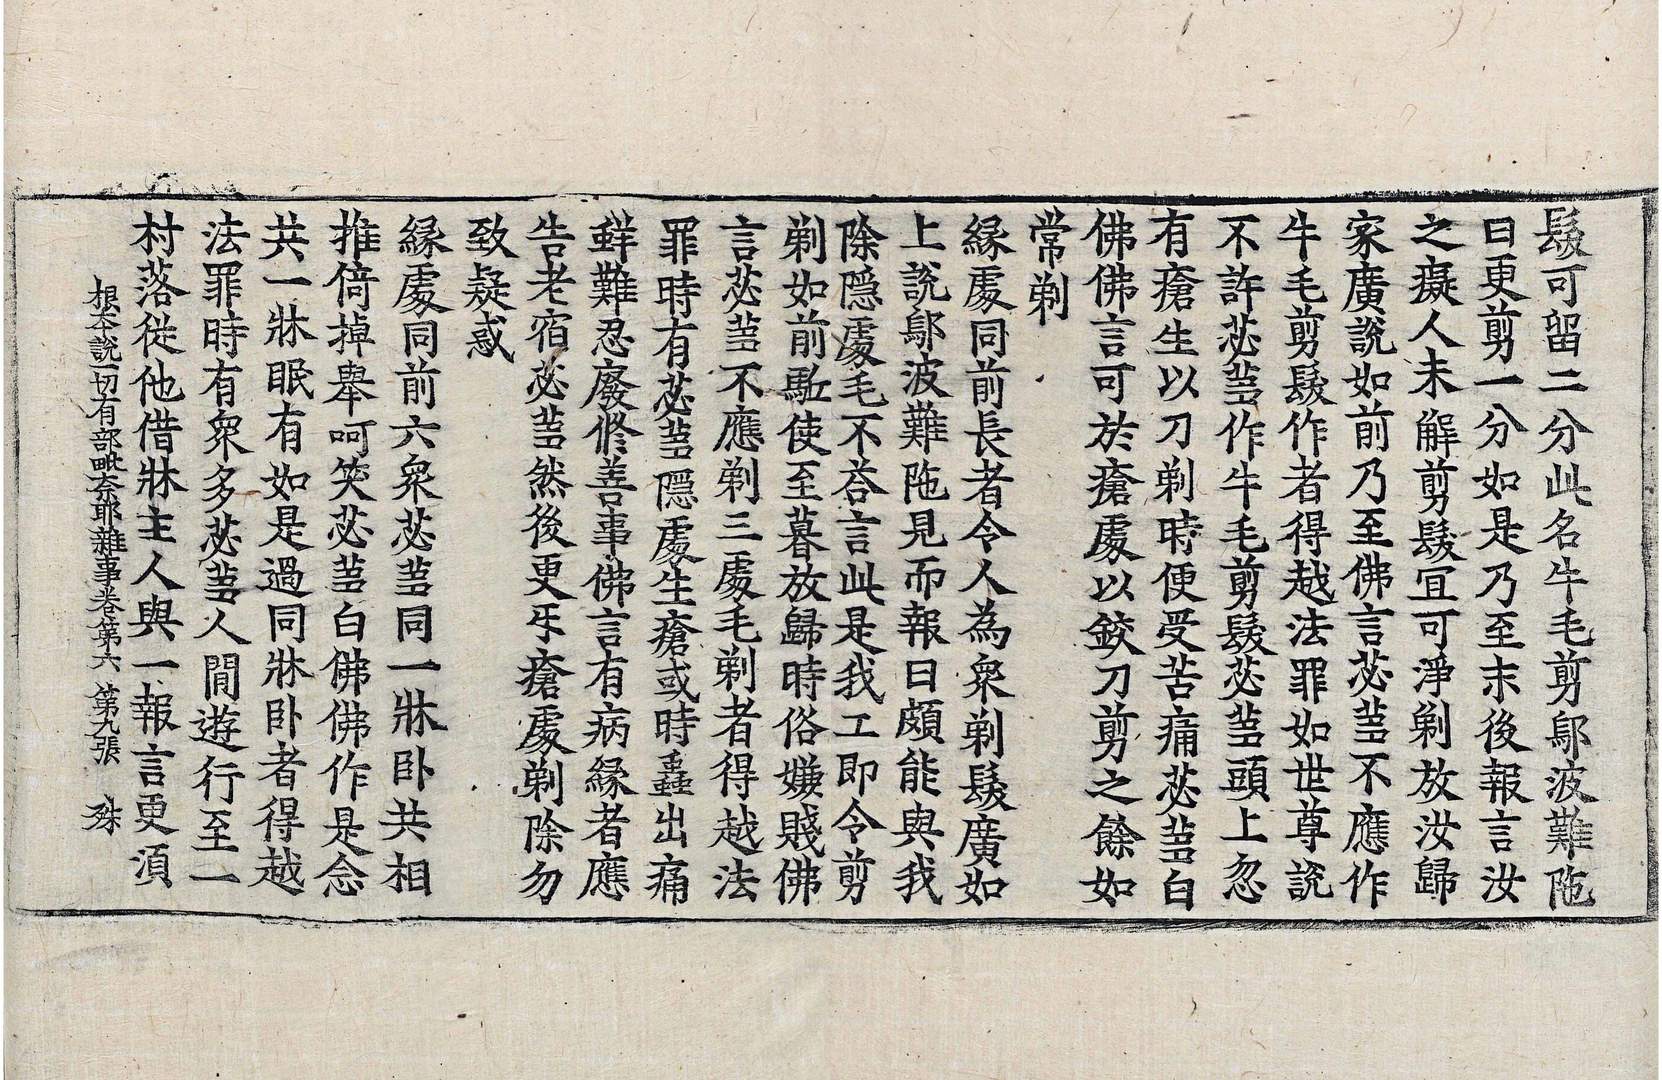 髮可留二分此名牛毛剪鄔波難陁
曰更剪一分如是乃至末後報言汝
之癡人未解剪髮冝可淨剃放汝歸
家廣說如前乃至佛言苾芻不應作
牛毛剪髮作者得越法罪如世尊說
不許苾芻作牛毛剪髮苾芻頭上忽
有瘡生以刀剃時便受苦痛苾芻白
佛佛言可於瘡處以鉸刀剪之餘如
常剃
緣處同前長者令人為衆剃髮廣如
上說鄔波難陁見而報曰頗能與我
除隱處毛不荅言此是我工即令剪
剃如前駈使至暮放歸時俗嫌賤佛
言苾芻不應剃三處毛剃者得越法
罪時有苾芻隱處生瘡或時蟲出痛
鮮難忍廢修善事佛言有病緣者應
告老宿苾芻然後更㸦瘡處剃除勿
致疑惑
緣處同前六衆苾芻同一牀卧共相
推倚掉舉呵笑苾芻白佛佛作是念
共一牀眠有如是過同牀卧者得越
法罪時有衆多苾芻人閒遊行至一
村落從他借牀主人與一報言更須
根本說一切有部毗奈耶雜事卷第六 第九張 殊